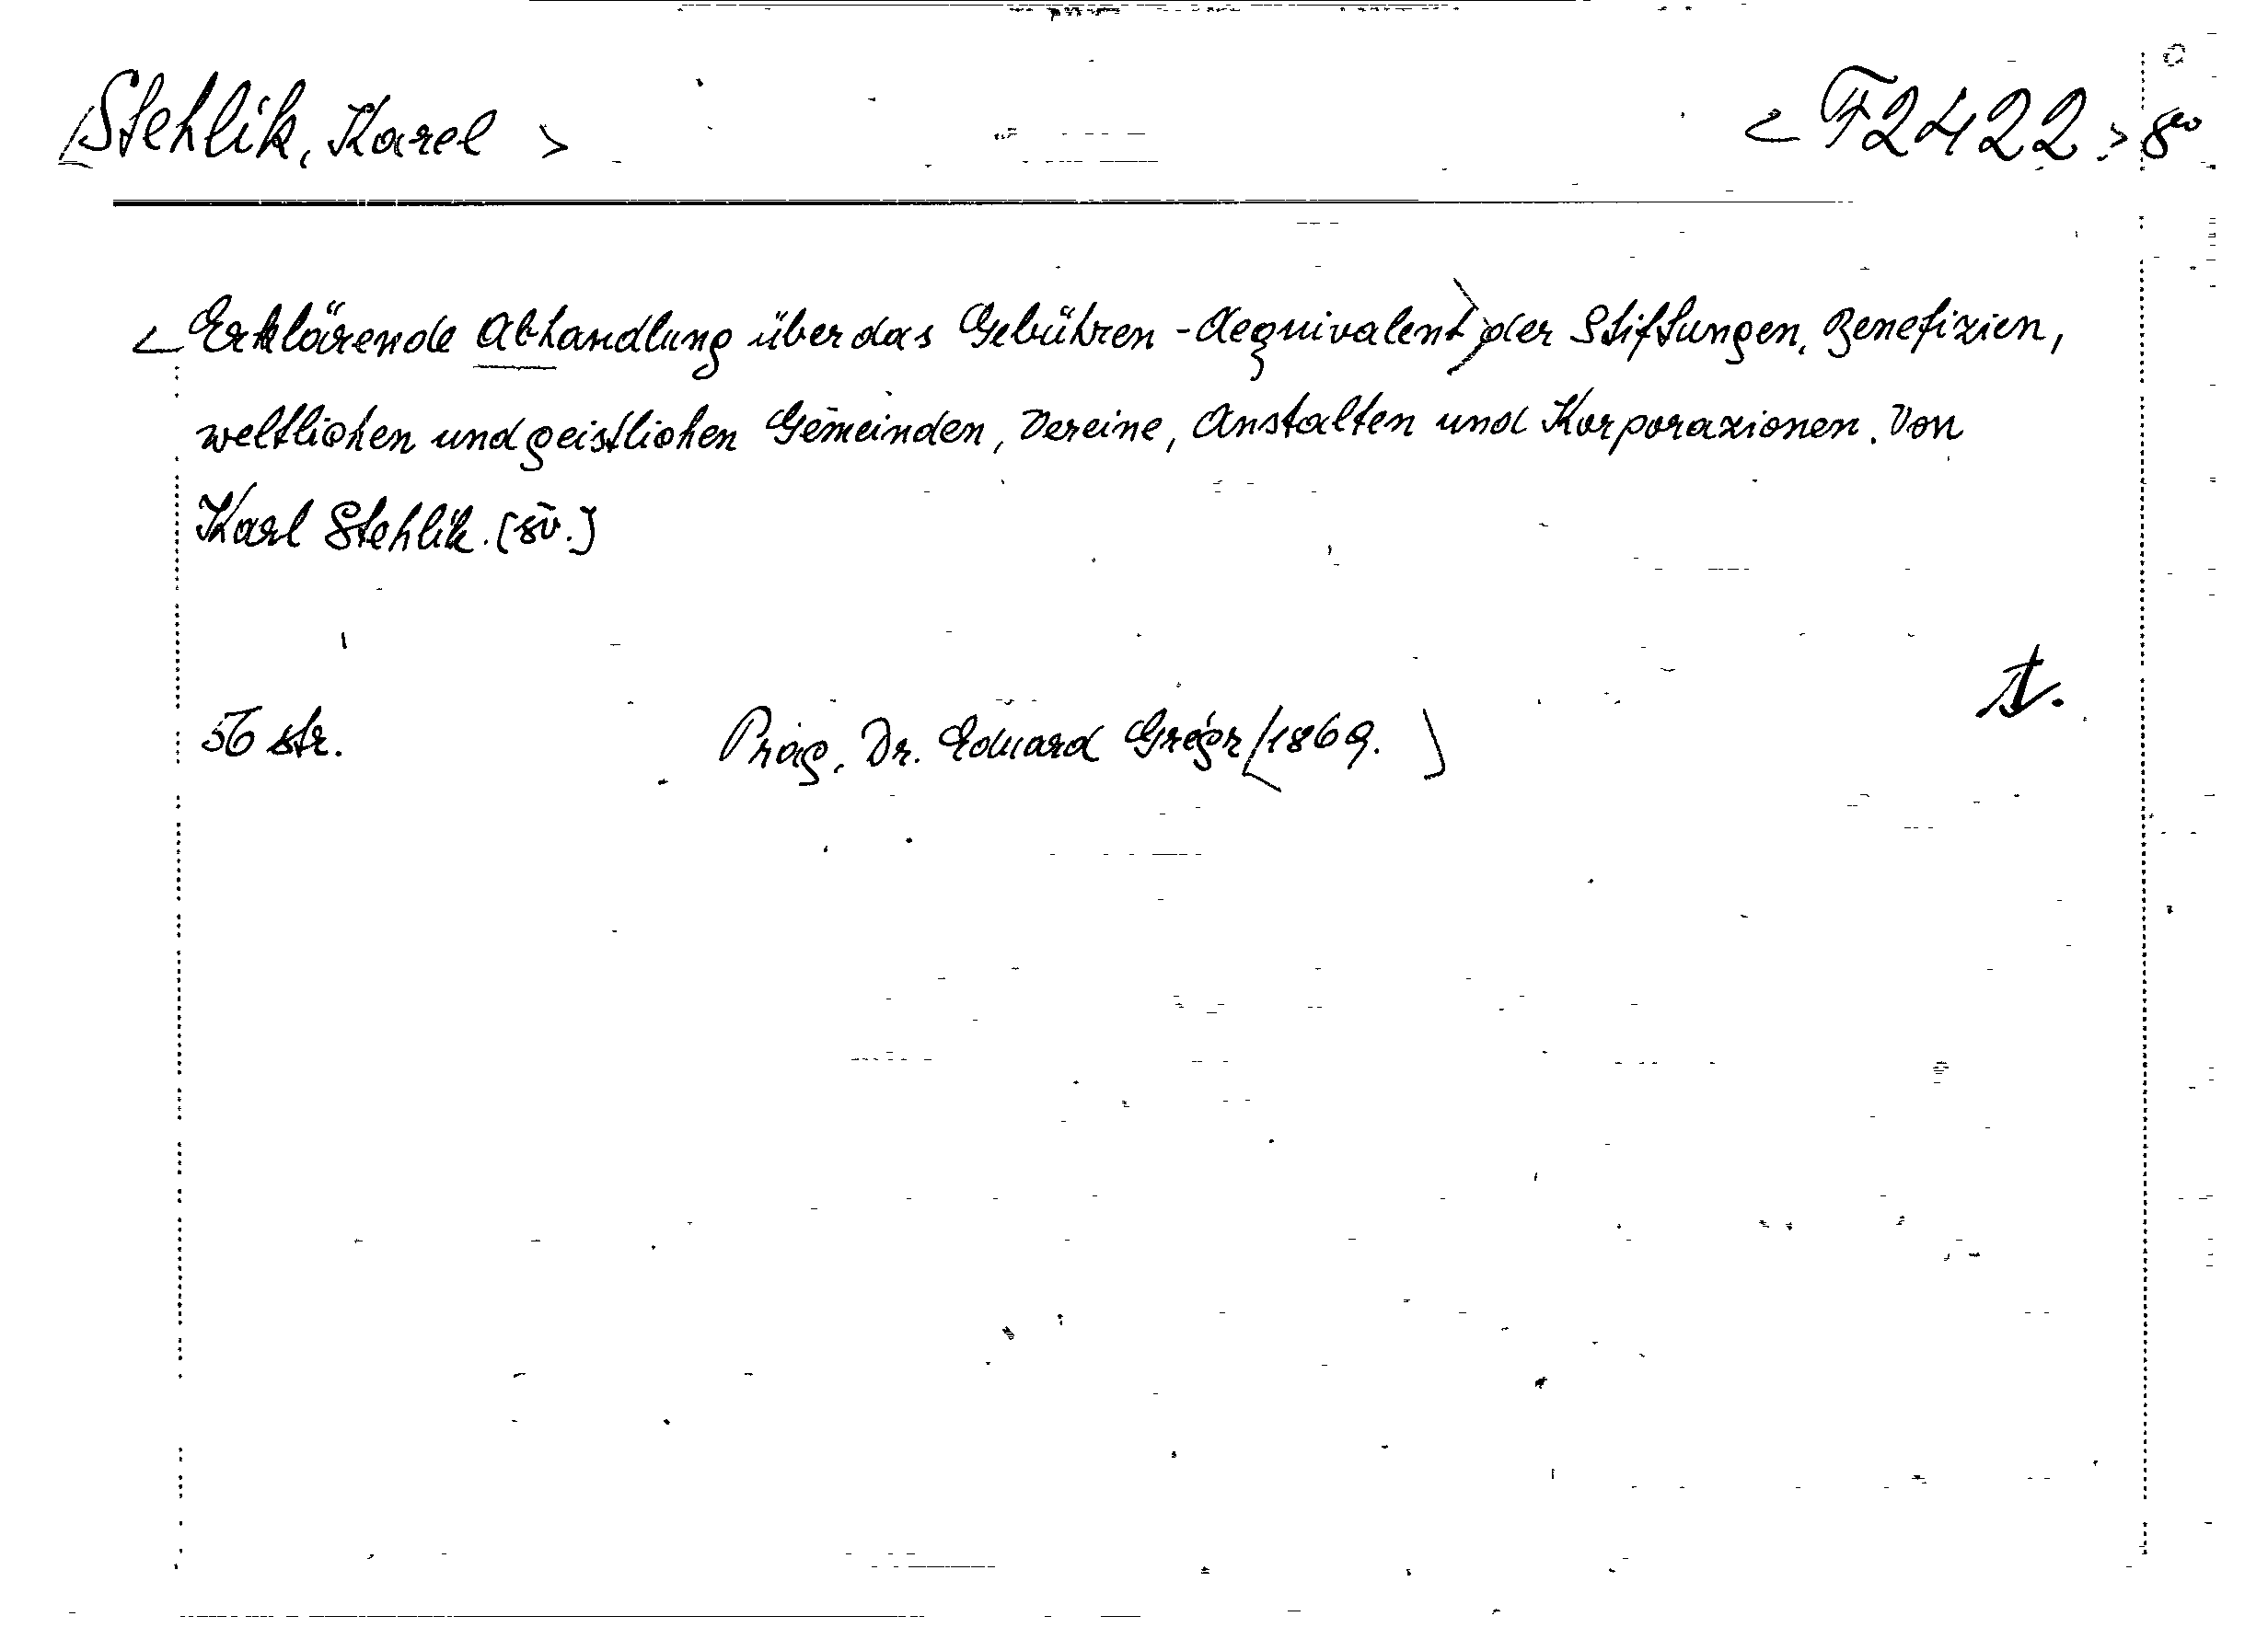 Stehlík, Karel > < F 2422 > 8°
< Erklärende Abhandlung über das Gebühren-Aequivalent> der Stiftungen, Benefizien,
weltlichen und geistlichen Gemeinden, Vereine, Anstalten und Korporazionen. Von
Karl Stehlik. [sv.]
56 str. Prag, Dr. Eduard Grégr <1869. >